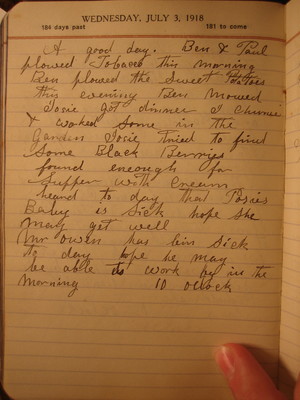 WEDNESDAY, JULY 3, 1918
184 days past 181 to come
A good day. Ben & Paul
plowed Tobacco this morning
Ben plowed the Sweet Potatoes
this evening Ben Mowed
Josie got dinner I
& worked Some in the
Garden Josie tried to find
Some Black Berrys
found eneough for
Supper with Cream
heard to day that Posies
Baby is Sick hope she
May get well
Mr Owen has bin Sick
To day hope he may
be able to work by in the
Morning 10 oclock